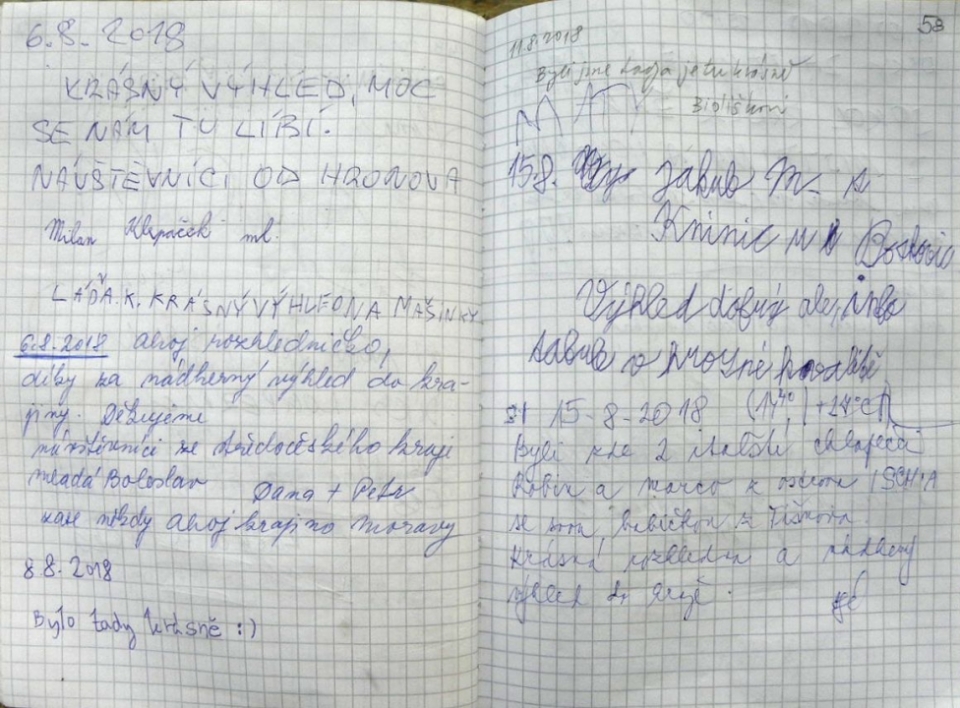 6.8.2018
KRÁSNÝ VÝHLED, MOC
SE NÁM TU LÍBÍ.
NÁVŠTĚVNÍCI OD HRONOVA
Milan Klepáček ml.
LÁĎA.K. KRÁSNÝ VÝHLED NA MAŠINKY
6.8.2018 ahoj rozhledničko,
díky za nádherný výhled do kra-
jiny. Děkujeme
návštěvníci ze středočeského kraje
mladá Boleslav Dana + Petr
zase někdy ahoj krajino moravy
8.8.2018
Bylo tady krásně :)
58
11.8.2018
Byli jsme tady a je tu krásně
15.8. Jakub M. z
Kninic u Boskovic
Výhled dobrý ale
15-8-2018
Byli zde 2 italští chlapečci
Robin a Marco z ostrova ISCHIA
se svou babičkou z Tišnova.
Krásná rozhledna a nádherný
výhled do kraje.